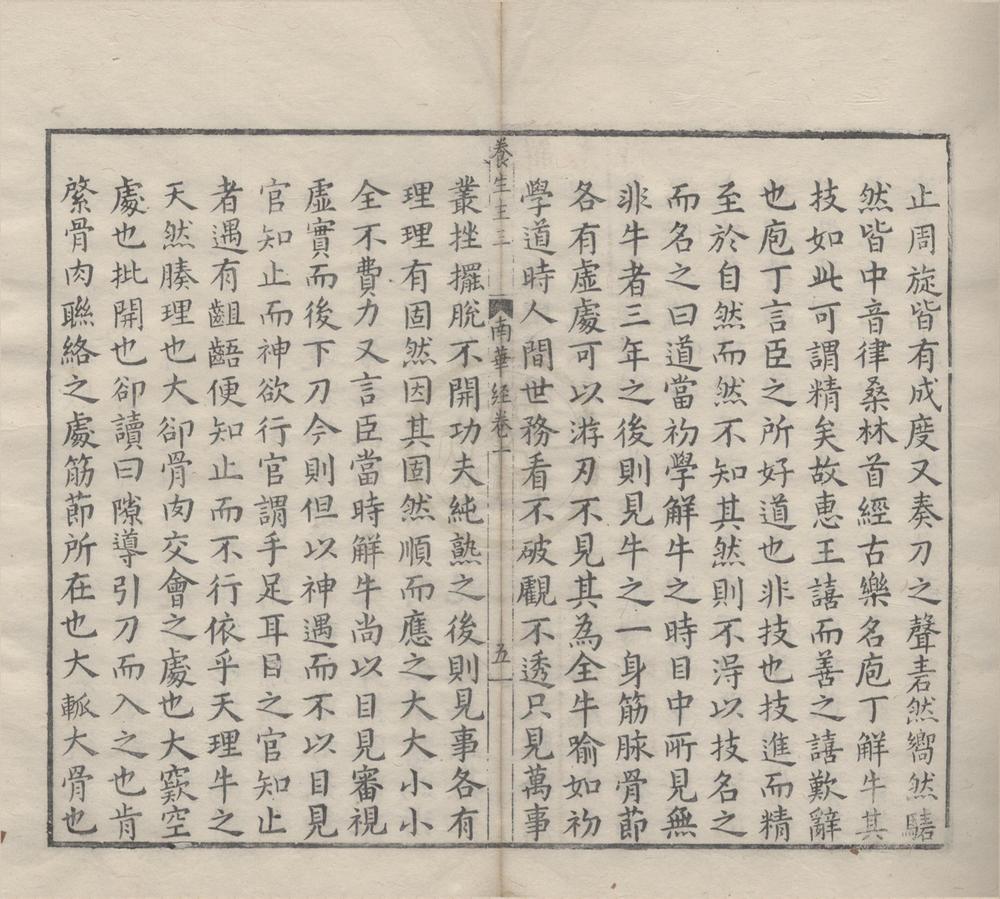 止周旋皆有成度又奏刀之聲砉然嚮然騞
然皆中音律桑林首經古樂名庖丁解牛其
技如此可謂精矣故惠王譆而善之譆歎辭
也庖丁言臣之所好道也非技也技進而精
至於自然而然不知其然則不淂以技名之
而名之曰道當初學解牛之時目中所見無
非牛者三年之後則見牛之一身筋脉骨節
各有虛處可以游刃不見其為全牛喻如初
學道時人間世務看不破覷不透只見萬事
養生主三
南華經卷一
五
叢挫擺脫不開功夫純熟之後則見事各有
理理有固然因其固然順而應之大大小小
全不費力又言臣當時解牛尚以目見審視
虛實而後下刀今則但以神遇而不以目見
官知止而神欲行官謂手足耳目之官知止
者遇有齟齬便知止而不行依乎天理牛之
天然腠理也大卻骨肉交會之處也大窾空
處也批開也卻讀曰隙導引刀而入之也肯
綮骨肉聯絡之處筋節所在也大軱大骨也